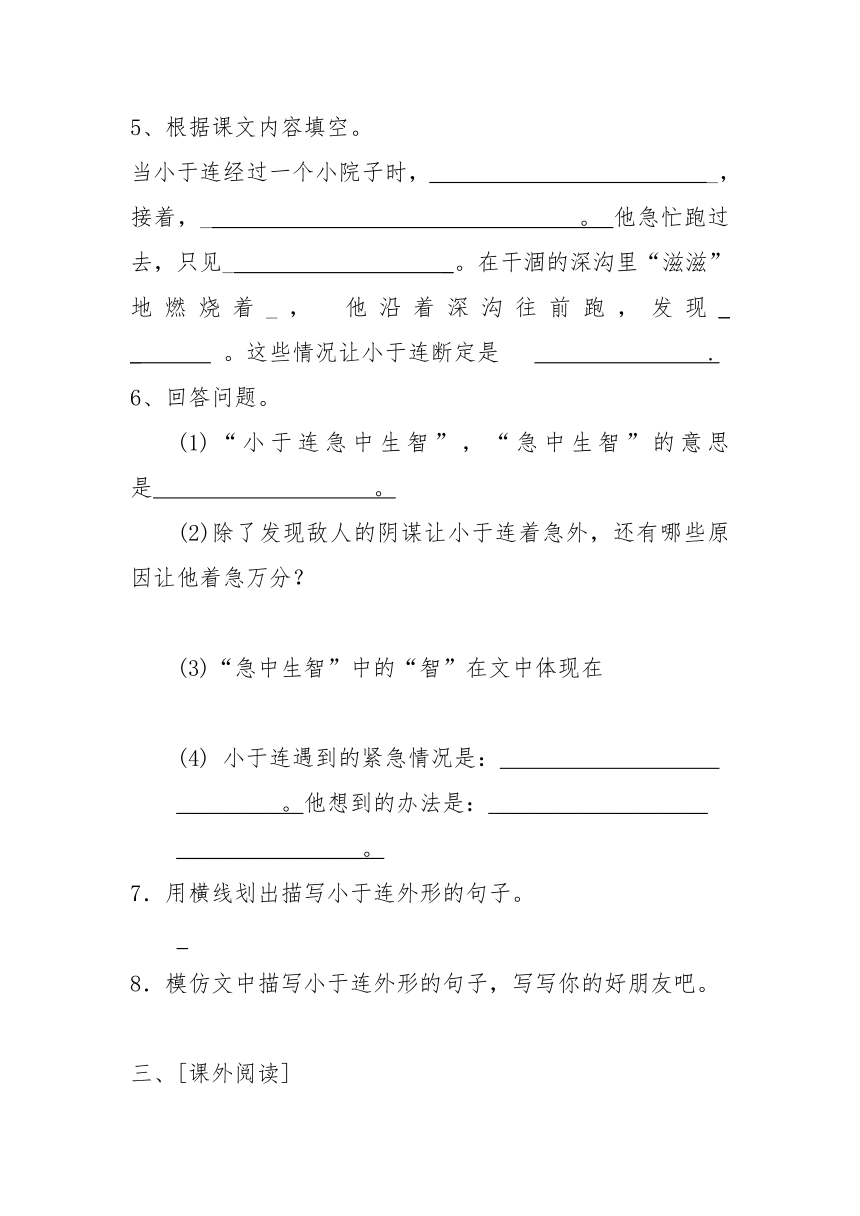 5、根据课文内容填空。
当小于连经过一个小院子时，_，
接着，_。他急忙跑过
去，只见_。在干涸的深沟里“滋滋”
地燃烧着_， 他沿着深沟往前跑，发现_
_。这些情况让小于连断定是 .
6、回答问题。
(1)“小于连急中生智”，“急中生智”的意思
是。
(2)除了发现敌人的阴谋让小于连着急外，还有哪些原
因让他着急万分？
(3)“急中生智”中的“智”在文中体现在
(4) 小于连遇到的紧急情况是：
。他想到的办法是：
。
7．用横线划出描写小于连外形的句子。
_
8．模仿文中描写小于连外形的句子，写写你的好朋友吧。
三、[课外阅读]